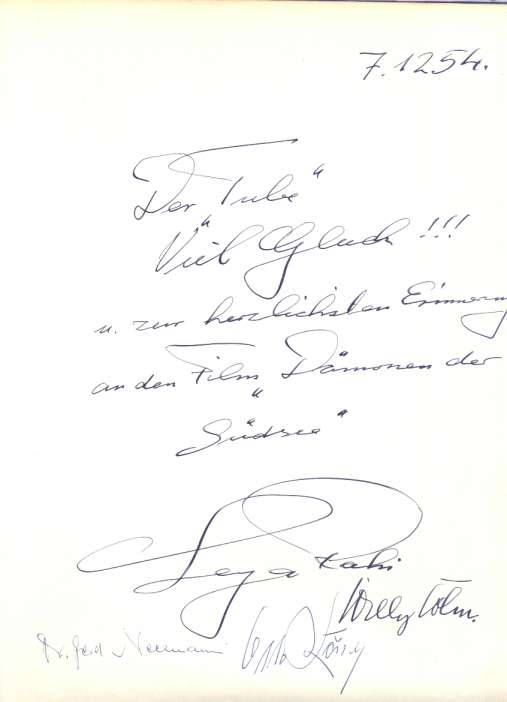 7.1254.
Der „Tube“
Viel Glück !!!
u. zur herzlichsten Erinnerung
an den Film „Dämonen der
Südsee“
Leya Raki
Willy Cölm.
Dr. Gerd Neumann